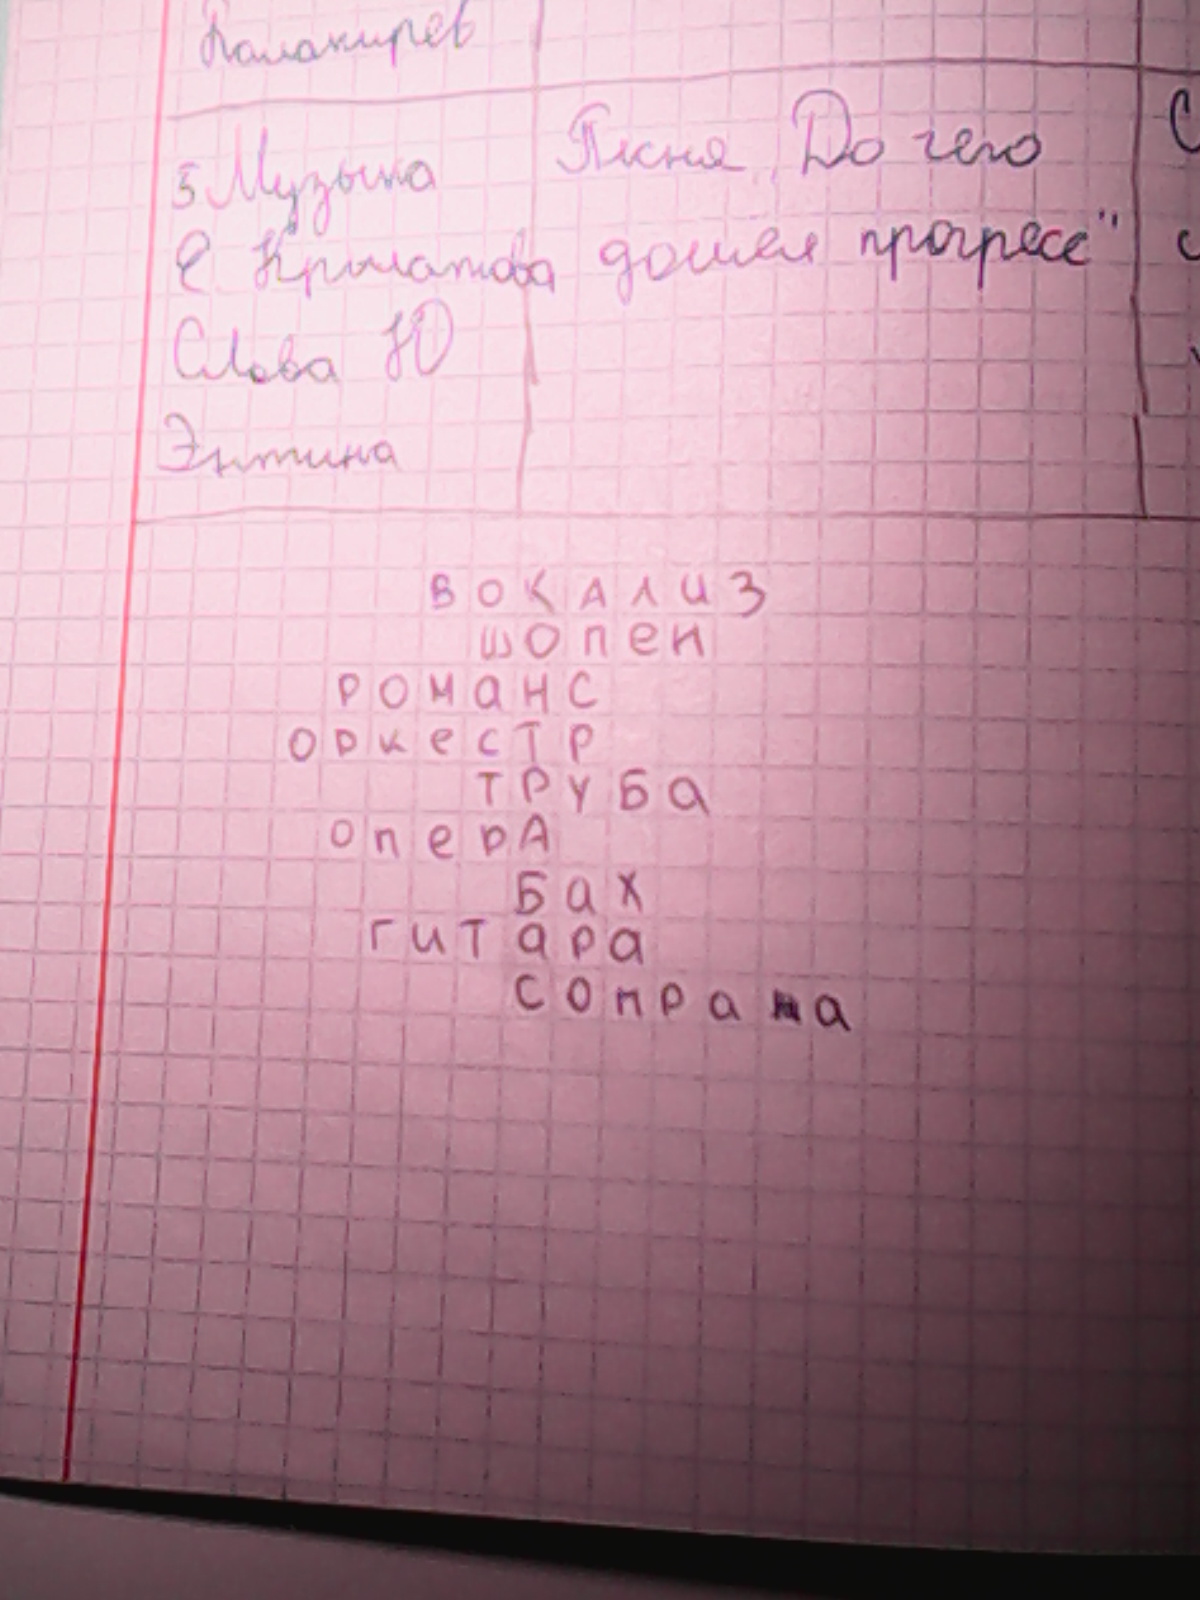 Балакирев
5 Музыка Песня „До чего
Е Крылатова дошёл прогресс"
Слова Ю
Энтина
ВОКАЛИЗ
шопен
РОМАНС
ОРКЕСТР
ТРУБА
ОперА
Бах
гитара
сопрана